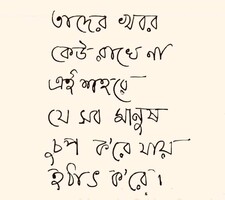 তাদের খবর
কেউ রাখে না
এই শহরে
যে সব মানুষ
চুপ ক'রে যায়
হঠাৎ ক'রে।